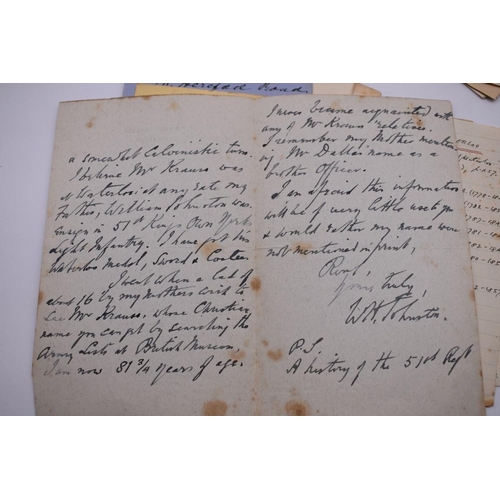 n. Hereford Road
a somewhat Calvinistic turn.
I believe Mr Krauss was
at Waterloo: at any rate my
Father, William Johnston was
ensign in 51st Kings Own Yorks
Light Infantry. I have got his
Waterloo Medal, Sword &
I went when a lad of
about 16 by my Mothers wish to
see Mr Krauss, whose Christian
name you can get by searching the
Army Lists at British Museum,
I am now 81 3/4 years of age.
I never became acquainted with
any of Mr Krauss relatives.
I remember my Mother mention
ing Mr Dallas' name as a
brother Officer.
I am afraid this information
will be of very little use to you
& would rather my name were
not mentioned in print,
Yours truly,
W H Johnston.
P.S.
A history of the 51st Regt